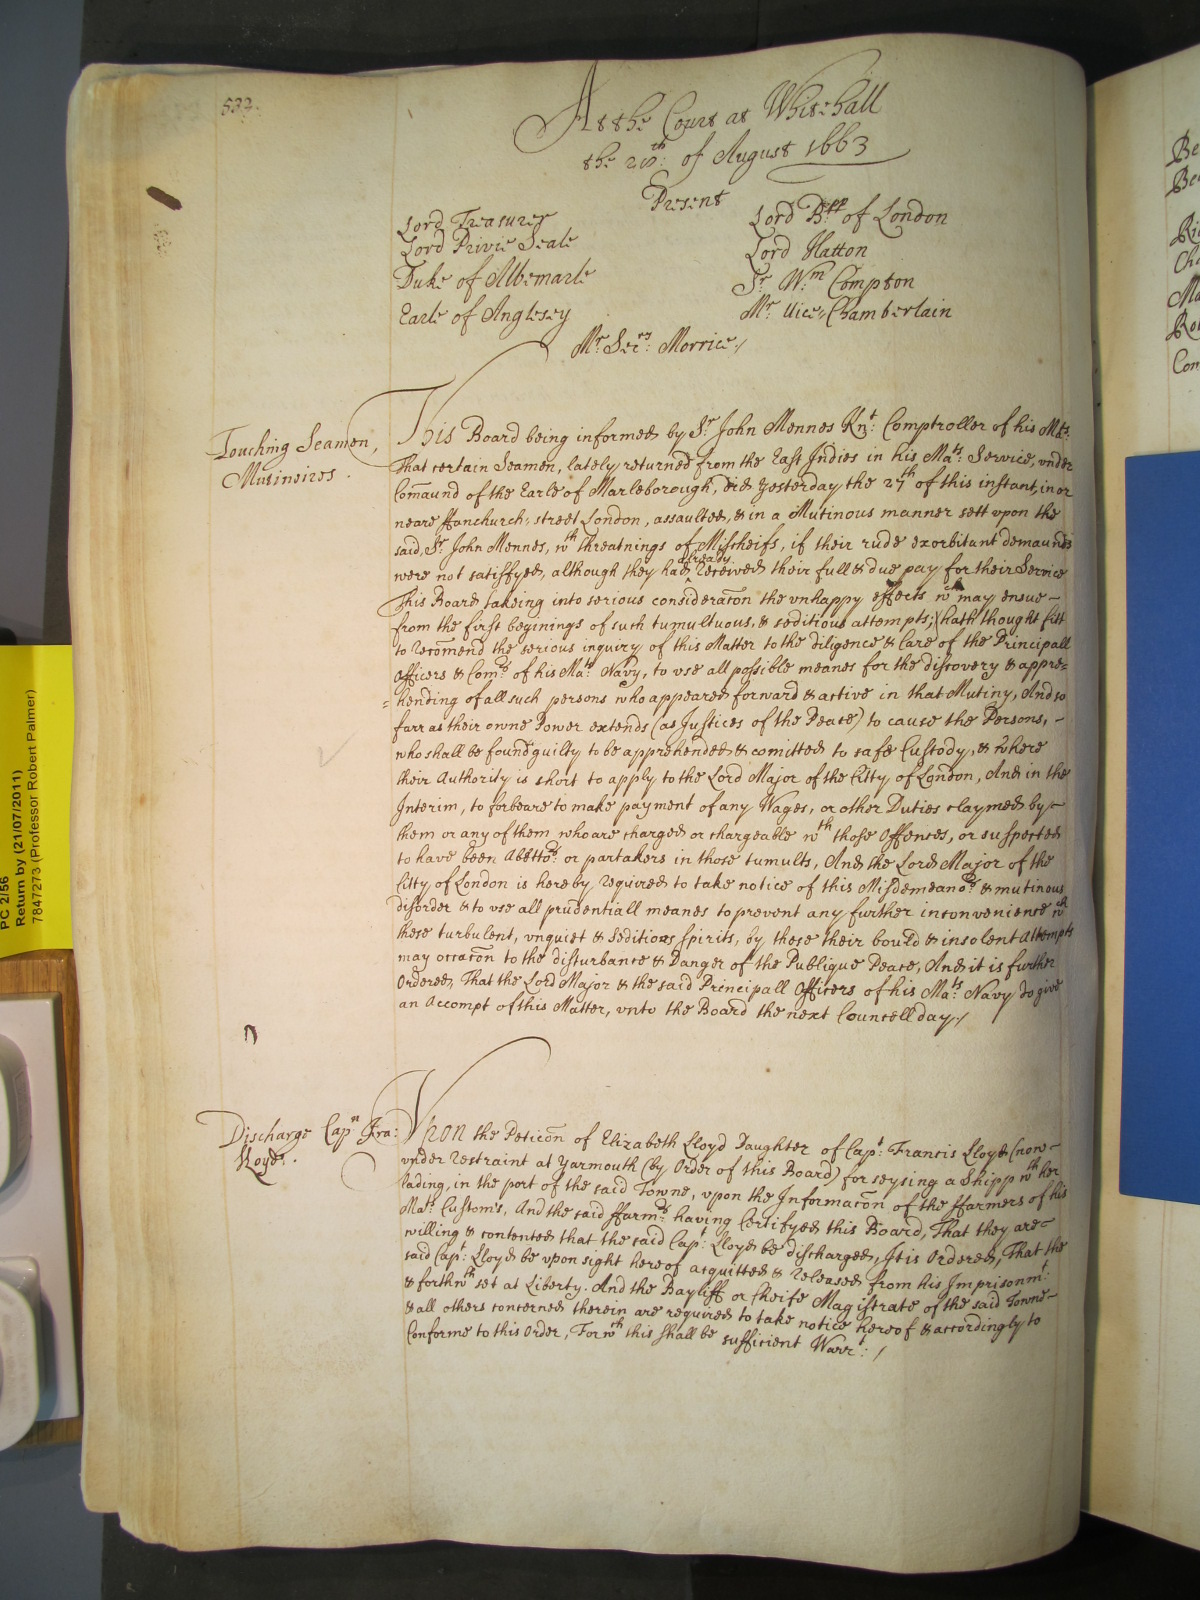 532.
At the Court at Whitehall
the 28th: of August 1663
Present
Lord Treasurer
Lord Privie Seale
Duke of Albemarle
Earle of Anglesey
Lord Bpp of London
Lord Hatton
Sr. Wm. Compton
Mr. Vice=Chamberlain
Mr. Secry: Morrice./
Touching Seamen,
Mutineires.
This Board being informed by Sr. John Mennes Knt: Comptroller of his Mats:
That certain Seamen, lately returned from the East Indies in his Mats: Service, vnder
Comaund of the Earle of Marleborough, did yesterday the 27th of this instant, in or
neare ffanchurch-street London, assaulted, & in a Mutinous manner sett vpon the
said, Sr. John Mennes, wth threatnings of Mischeifs, if their rude exorbitant demaunds
were not satisfyed, although they had already received their full & due pay for their Service
This Board takeing into serious consideracon the vnhappy effects wch may ensue-
from the first beginings of such tumultuous, & seditious attempts; hath thought fitt
to recomend the serious inquiry of this Matter to the diligence & Care of the Principall
Officers & Comrs of his Mats Navy, to vse all possible meanes for the discovery & appre=
=hending of all such persons who appeared forward & active in that Mutiny, And so
farr as their owne Power extends (as Justices of the Peace) to cause the Persons, -
who shall be found guilty to be apprehended & comitted to safe Custody, & where
their Authority is short to apply to the Lord Major of the Citty of London, And in the
Interim, to forbeare to make payment of any Wages, or other Duties claymed by-
them or any of them, who are charged or chargeable wth those Offences, or suspected
to have been Abettors: or partakers in those tumults, And the Lord Major of the
Citty of London is hereby required to take notice of this Misdemeanor: & mutinous
disorder & to vse all prudentiall meanes to prevent any further inconvenience wch
these turbulent, vnquiet & Seditious spirits, by these their bould & insolent attempts
may occacon to the disturbance & Danger of the Publique Peace, And it is further
Ordered, That the Lord Major & the said Principall Officers of his Mats: Navy do give
an Accompt of this Matter, vnto the Board the next Councell day./
Discharge Capn Fra:
Lloyd.
Vpon the Peticon of Elizabeth Lloyd Daughter of Capt: Francis Lloyd (now-
vnder restraint at Yarmouth (by Order of this Board) for seysing a Shipp wth her
lading, in the port of the said Towne, vpon the Informacon of the ffarmers of his
Mats: Customs, And the said ffarmrs: having Certifyed this Board, That they are-
willing & contented that the said Capt: Lloyd be discharged, It is Ordered, That the
said Capt: Lloyd be vpon sight hereof acquitted & released from his Imprisonmt:
& forthwth set at Liberty. And the Bayliff or Cheife Magistrate of the said Towne-
& all others concerned therein are required to take notice hereof & accordingly to
Conforme to this Order, For wch this shall be sufficient Warrt: /
PC 2/56
Return by (21/07/2011)
7847273 (Professor Robert Palmer)
Be
Ri
Cha
Ma
Con